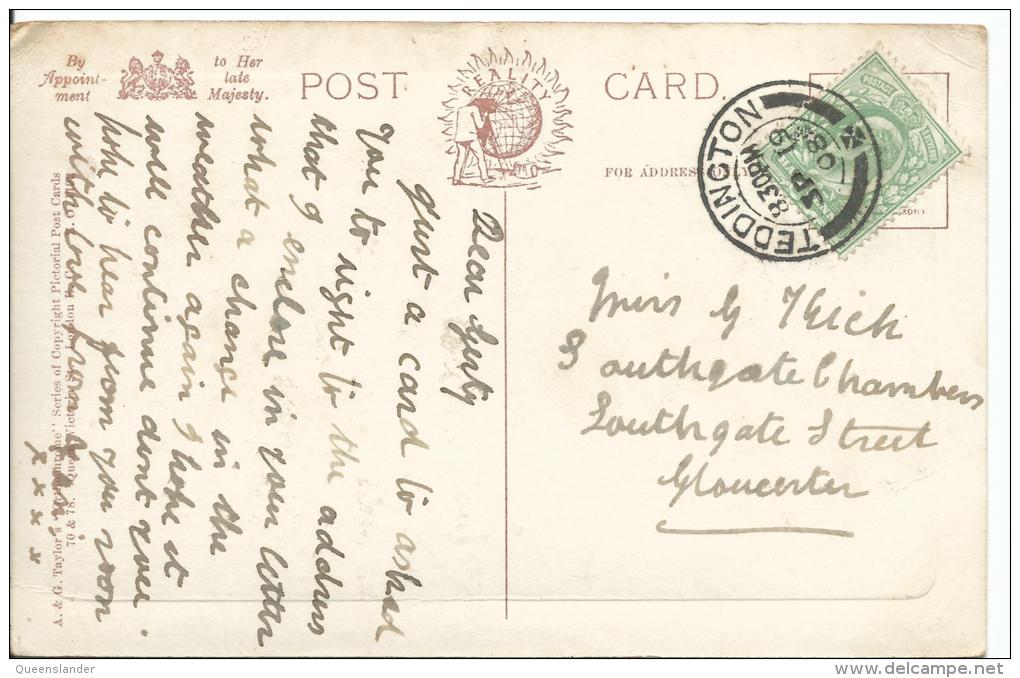 By Appoint-ment
to Her late Majesty.
POST CARD.
REALITY
FOR ADDRESS ONLY
POSTAGE
TEDDINGTON
8.30PM
SP 19
08
Miss G
Southgate Chambers
Southgate Street
Gloucester
Dear Gerty
Just a card to asked
you to right to the address
that I enclose in your letter
what a change in the
weather again I hope it
will continue dont you
hope to hear from you soon
with love from
x x x x
A. & G. Taylor's Series of Copyright Pictorial Post Cards
70 & 78, Queen Victoria St., London
Queenslander
delcampe.net